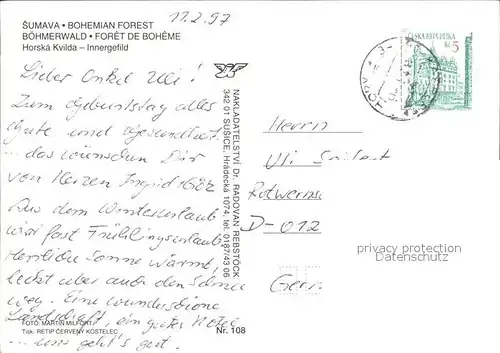 11.2.97
ŠUMAVA • BOHEMIAN FOREST
BÖHMERWALD • FORÊT DE BOHÊME
Horská Kvilda – Innergefild
Lieber Onkel Uli!
Zum Geburtstag alles
Gute und Gesundheit
... das wünschen Dir
von Herzen Ingrid + Götz
Aus dem Winterurlaub
wird fast Frühlingsurlaub
Herrliche Sonne wärmt,
leckt aber auch den Schnee
weg. Eine wunderschöne
Landschaft, ein gutes Hotel
... uns geht's gut.
FOTO: MARTIN MILFORT
Tisk: RETIP ČERVENÝ KOSTELEC
Nr. 108
NAKLADATELSTVÍ Dr. RADOVAN REBSTÖCK
342 01 SUŠICE, Hrádecká 1074, tel. 0187/43 06
ČESKÁ REPUBLIKA
Kč 5
Herrn
Uli Seifert
D-012
Ger
PRIVACY PROTECTION
Datenschutz